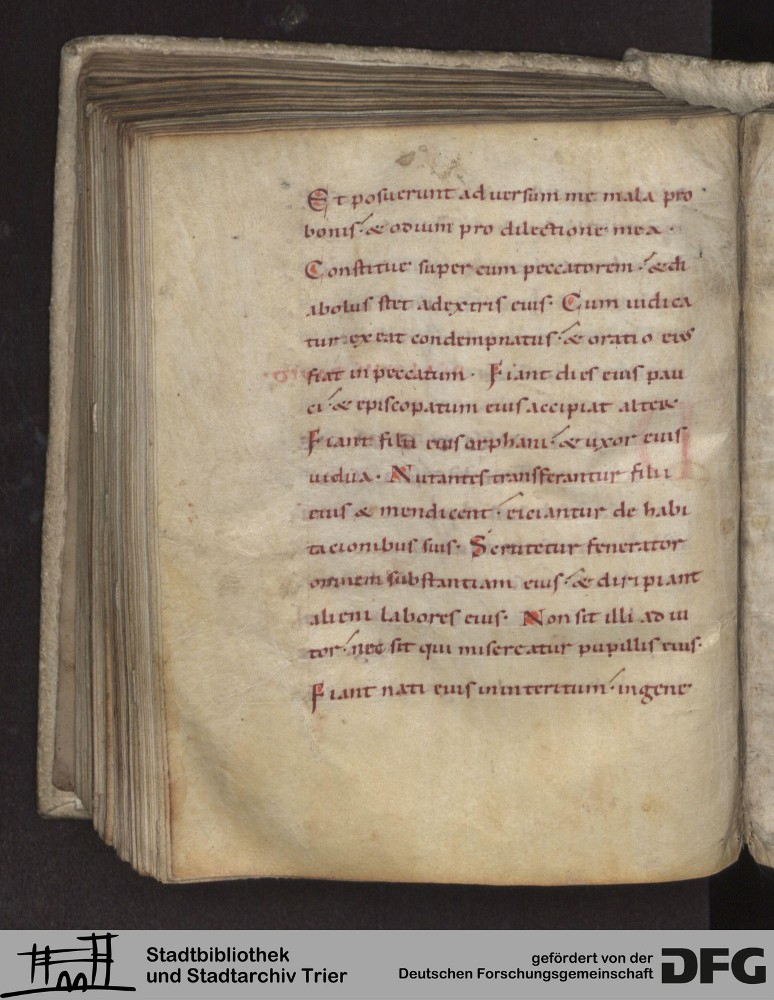 Et posuerunt adversum me mala pro
bonis. & odium pro dilectione mea.
Constitue super eum peccatorem. & di
abolus stet adextris eius. Cum iudica
tur exeat condempnatus. & oratio eius
fiat in peccatum. Fiant dies eius pau
ci. & episcopatum eius accipiat alter.
Fiant filii eius orphani. & uxor eius
uidua. Nutantes transferantur filii
eius & mendicent. eiciantur de habi
tacionibus suis. Scrutetur fenerator
omnem substantiam eius. & diripiant
alieni labores eius. Non sit illi ad iu
tor. nec sit qui misereatur pupillis eius.
Fiant nati eius in interitum. in gene
Stadtbibliothek
und Stadtarchiv Trier
gefördert von der
Deutschen Forschungsgemeinschaft
DFG